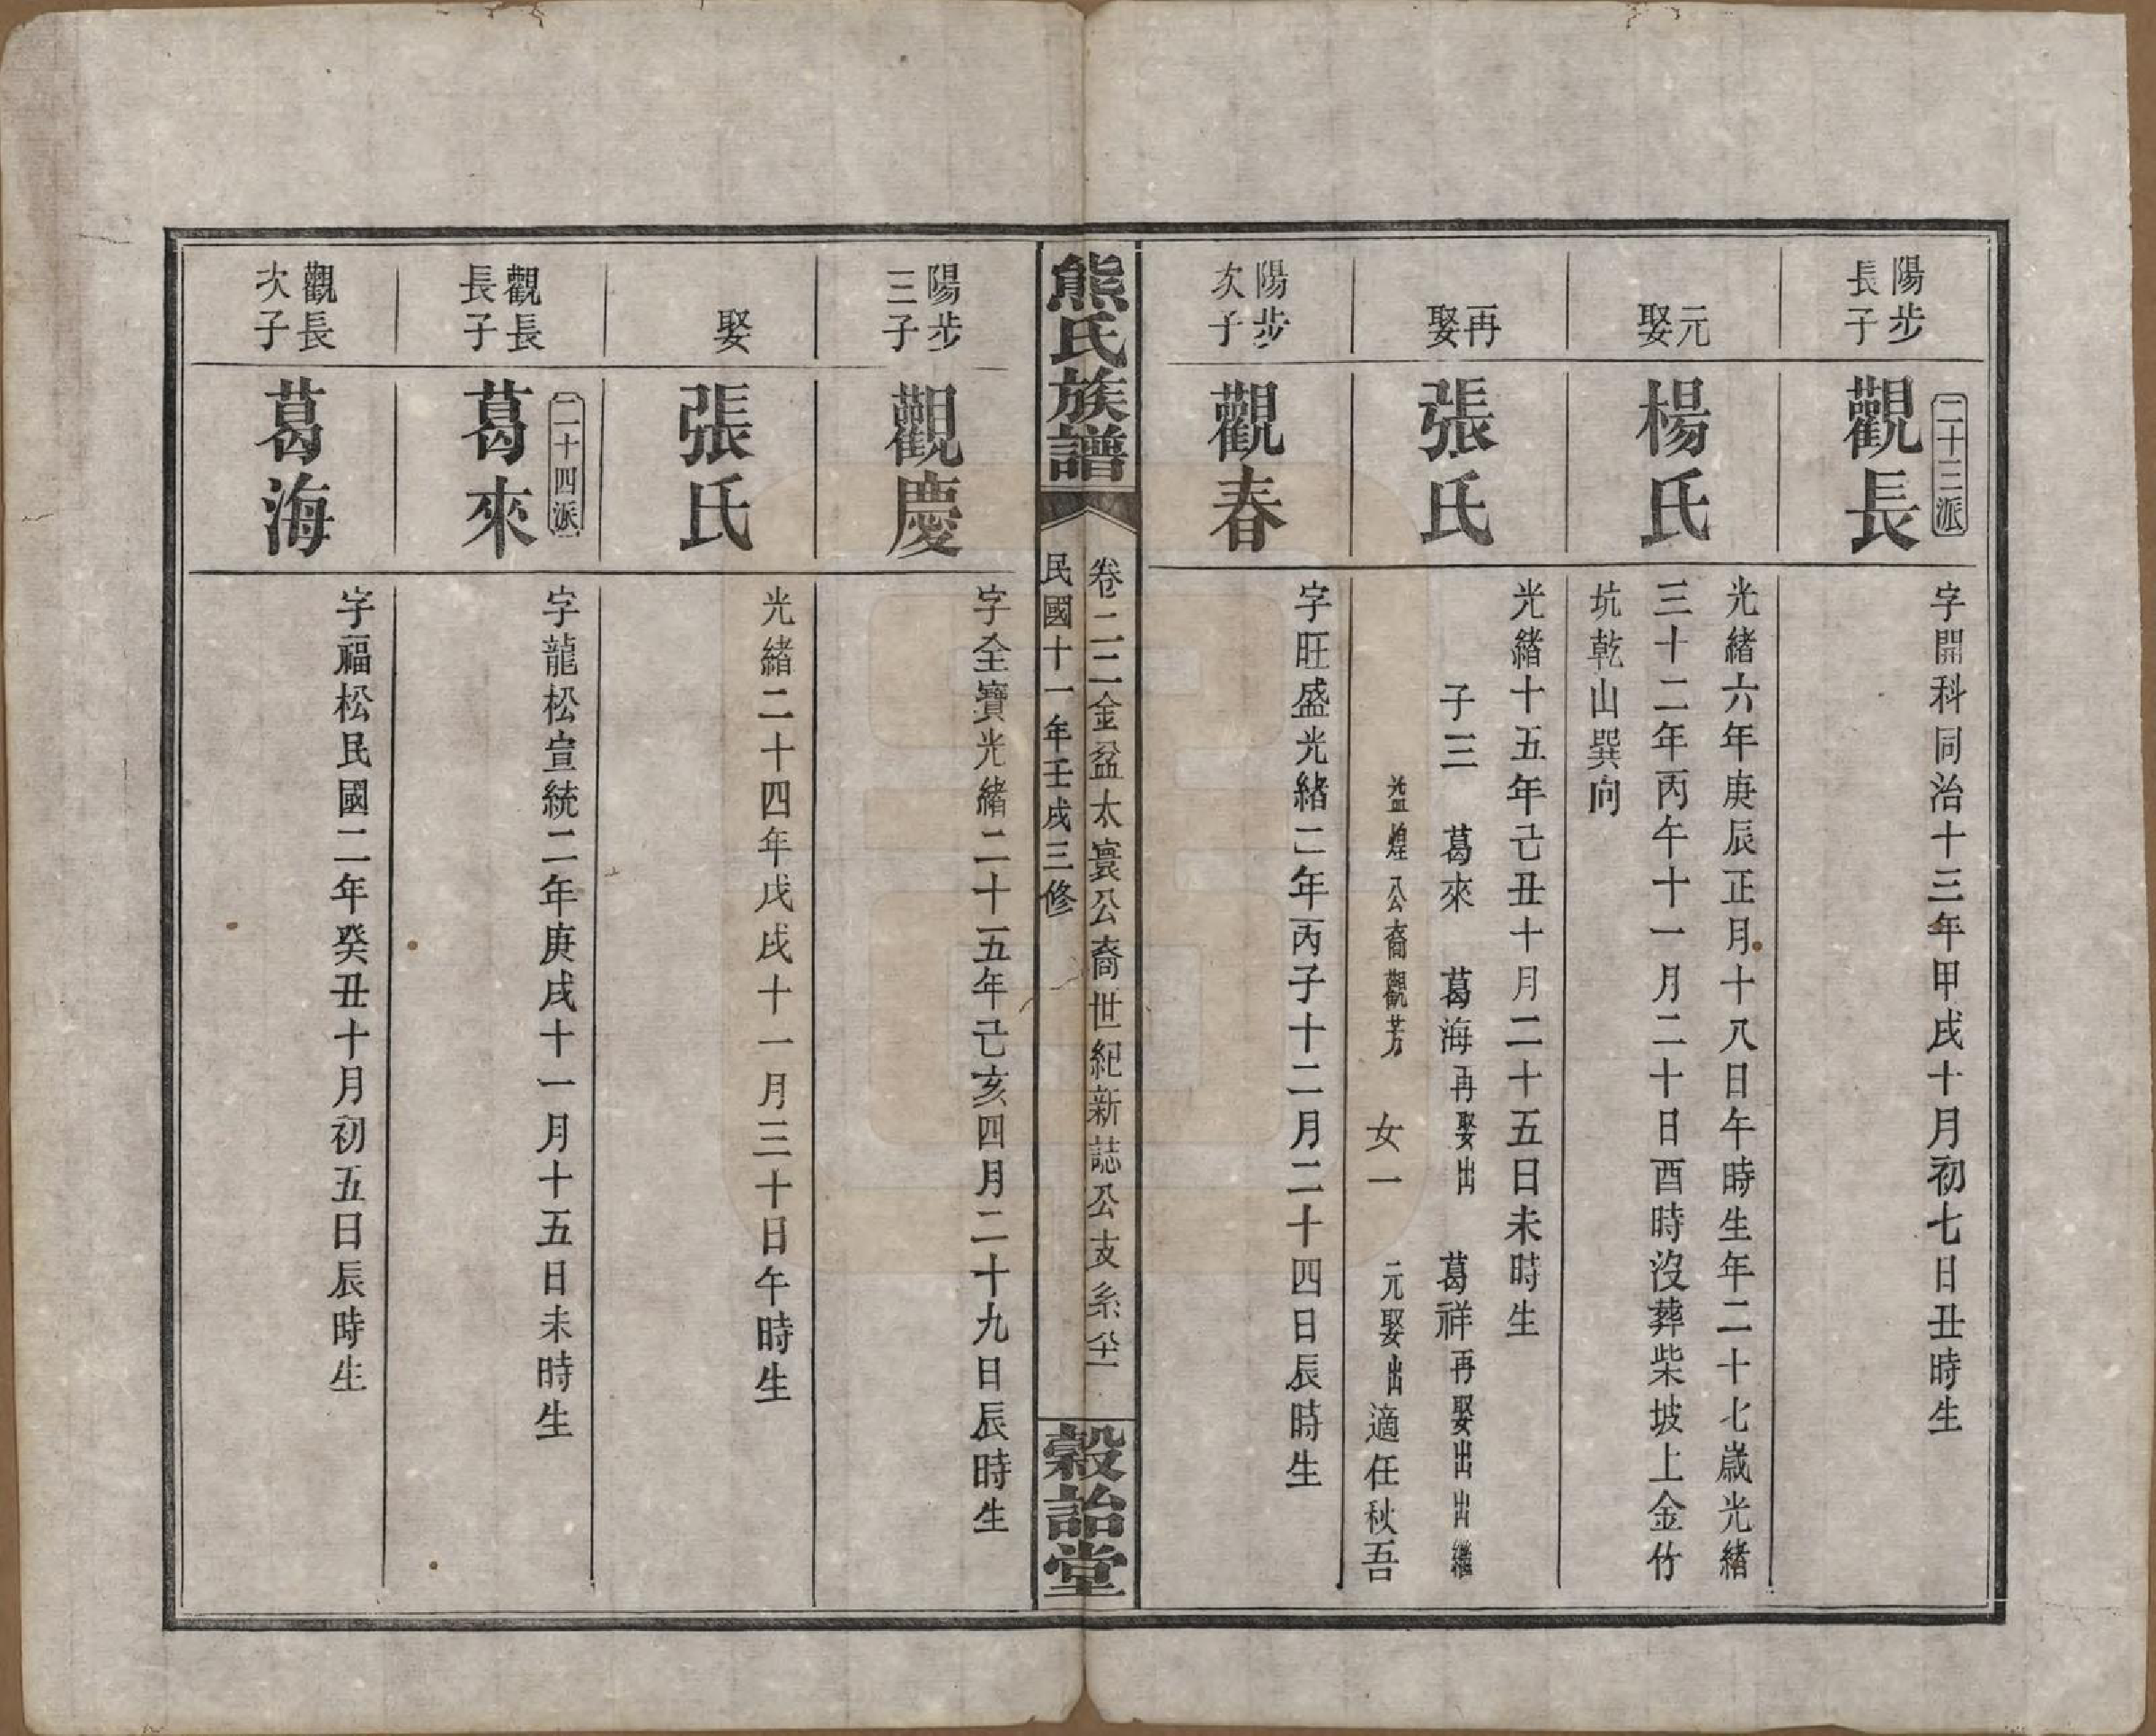 二十三派
陽步
長子
觀長
字開科同治十三年甲戌十月初七日丑時生
元
娶
楊氏
光緒六年庚辰正月十八日午時生年二十七歲光緒
三十二年丙午十一月二十日酉時沒葬柴坡上金竹
坑乾山巽向
再
娶
張氏
光緒十五年己丑十月二十五日未時生
子三 葛來 葛海再娶出 葛祥再娶出出繼
益煌公裔觀芳 女一 元娶出適任秋吾
陽步
次子
觀春
字旺盛光緒二年丙子十二月二十四日辰時生
熊氏族譜
卷二二金盆太寰公裔世紀新誌公支系
民國十一年壬戌三修
穀詒堂
陽步
三子
觀慶
字全寶光緒二十五年己亥四月二十九日辰時生
娶
張氏
光緒二十四年戊戌十一月三十日午時生
觀長
長子
二十四派
葛來
字龍松宣統二年庚戌十一月十五日未時生
觀長
次子
葛海
字福松民國二年癸丑十月初五日辰時生